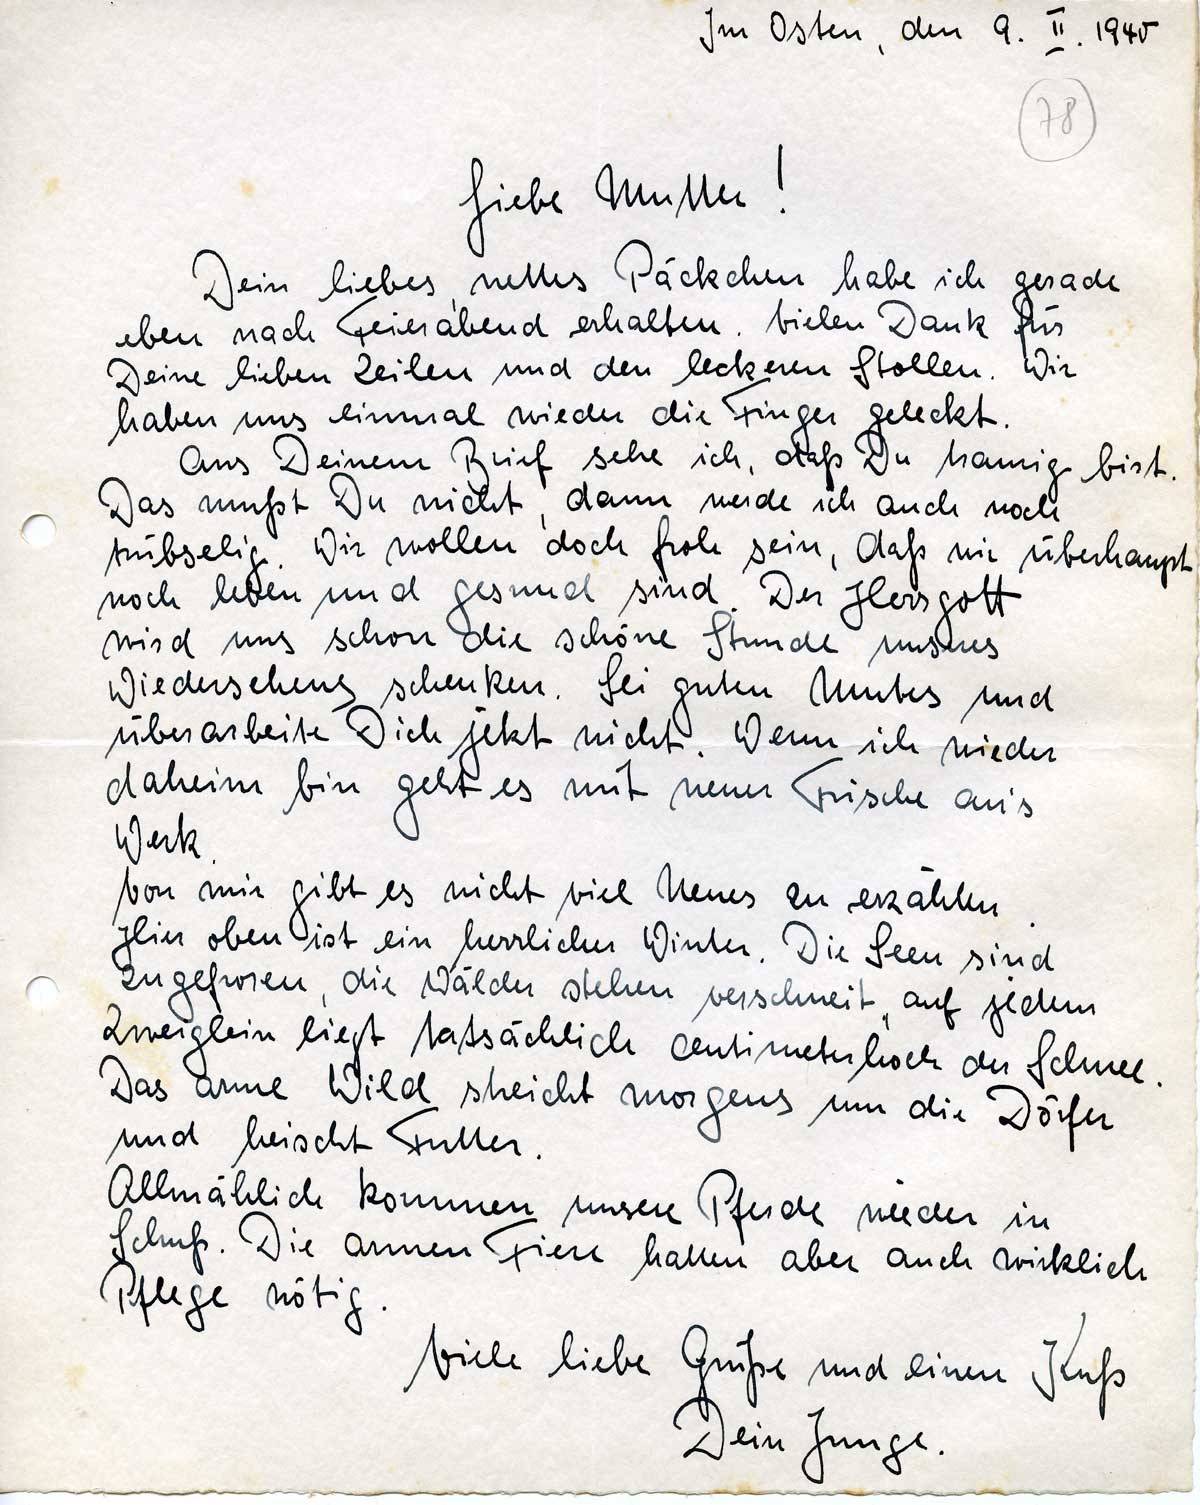 Im Osten, den 9. II. 1940
78
Liebe Mutter!
Dein liebes, nettes Päckchen habe ich gerade
eben nach Feierabend erhalten. Vielen Dank für
Deine lieben Zeilen und den leckeren Stollen. Wir
haben uns einmal wieder die Finger geleckt.
Aus Deinem Brief sehe ich, daß Du traurig bist.
Das mußt Du nicht, dann werde ich auch noch
trübselig. Wir wollen doch froh sein, daß wir überhaupt
noch leben und gesund sind. Der Herrgott
wird uns schon die schöne Stunde unseres
Wiedersehens schenken. Sei guten Mutes und
überarbeite Dich jetzt nicht. Wenn ich wieder
daheim bin geht es mit neuer Frische an's
Werk.
Von mir gibt es nicht viel Neues zu erzählen.
Hier oben ist ein herrlicher Winter. Die Seen sind
zugefroren, die Wälder stehen verschneit, auf jedem
Zweiglein liegt tatsächlich centimeterhoch der Schnee.
Das arme Wild streicht morgens um die Dörfer
und heischt Futter.
Allmählich kommen unsere Pferde wieder in
Schuß. Die armen Tiere hatten aber auch wirklich
Pflege nötig.
Viele liebe Grüße und einen Kuß
Dein Junge.